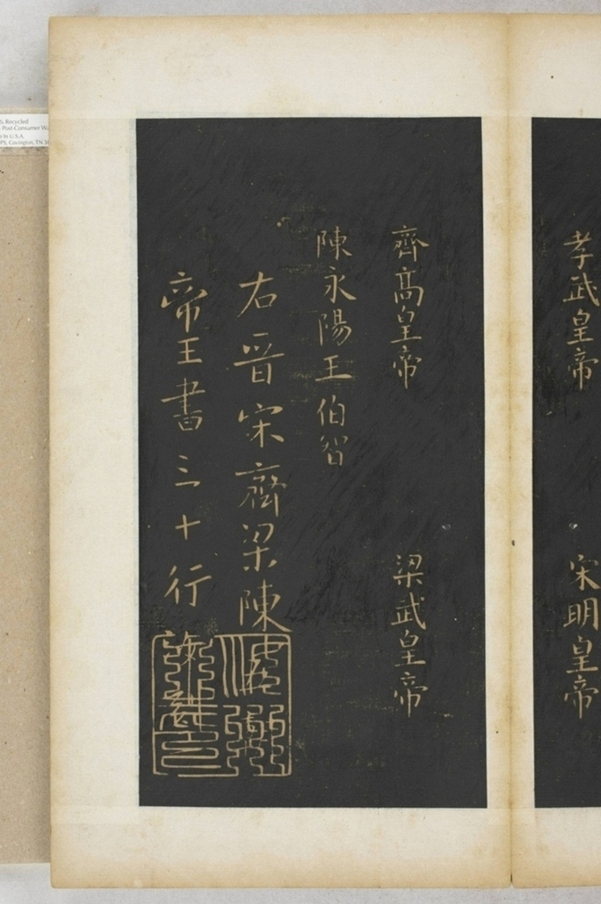 孝武皇帝　宋明皇帝
齊髙皇帝　梁武皇帝
陳永陽王伯智
右晋宋齊梁陳
帝王書三十行
Recycled
Post-Consumer
U.S.A.
Covington, TN